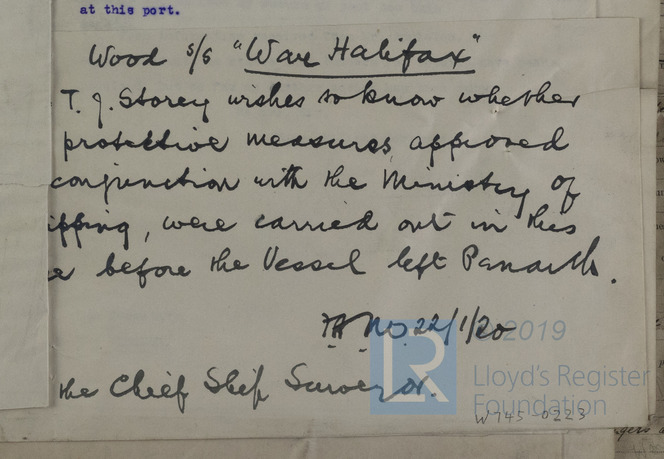 at this port.
Wood s/s "War Halifax"
T. J. Storey wishes to know whether
protective measures, approved
conjunction with the Ministry of
ipping, were carried out in this
e before the Vessel left Penarth.
22/1/20
the Chief Ship Surveyor.
2019
Lloyd's Register
Foundation
W745-0223